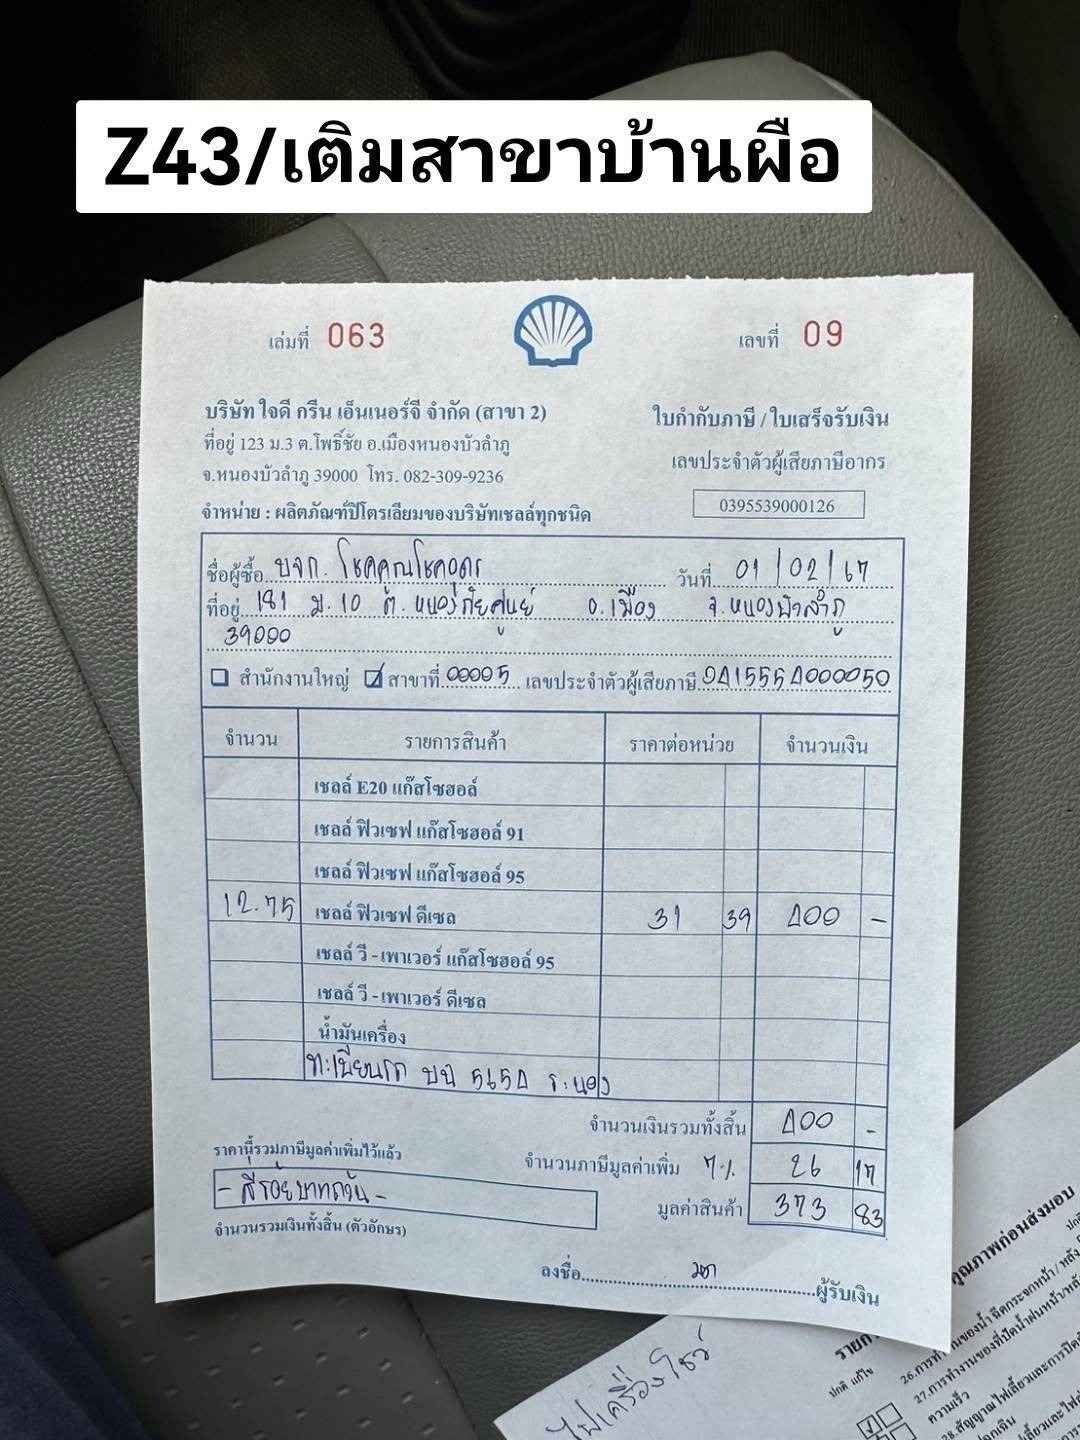 Z43/เติมสาขาบ้านผือ
เล่มที่ 063
เลขที่ 09
บริษัท ใจดี กรีน เอ็นเนอร์จี จำกัด (สาขา 2)
ที่อยู่ 123 ม.3 ต.โพธิ์ชัย อ.เมืองหนองบัวลำภู
จ.หนองบัวลำภู 39000 โทร. 082-309-9236
จำหน่าย : ผลิตภัณฑ์ปิโตรเลียมของบริษัทเชลล์ทุกชนิด
ใบกำกับภาษี / ใบเสร็จรับเงิน
เลขประจำตัวผู้เสียภาษีอากร
0395539000126
ชื่อผู้ซื้อ บจก. โชคคูณโชคอุดร วันที่ 01/02/67
ที่อยู่ 181 ม.10 ต. หนองภัยศูนย์ อ.เมือง จ.หนองบัวลำภู
39000
สำนักงานใหญ่ สาขาที่ 00005 เลขประจำตัวผู้เสียภาษี 0415554000050
จำนวน รายการสินค้า ราคาต่อหน่วย จำนวนเงิน
เชลล์ E20 แก๊สโซฮอล์
เชลล์ ฟิวเซฟ แก๊สโซฮอล์ 91
เชลล์ ฟิวเซฟ แก๊สโซฮอล์ 95
12.75 เชลล์ ฟิวเซฟ ดีเซล 31 39 400 -
เชลล์ วี - เพาเวอร์ แก๊สโซฮอล์ 95
เชลล์ วี - เพาเวอร์ ดีเซล
น้ำมันเครื่อง
ทะเบียนรถ บฉ 5654 ระนอง
จำนวนเงินรวมทั้งสิ้น 400 -
ราคานี้รวมภาษีมูลค่าเพิ่มไว้แล้ว
จำนวนภาษีมูลค่าเพิ่ม 7% 26 17
- สี่ร้อยบาทถ้วน -
มูลค่าสินค้า 373 83
จำนวนรวมเงินทั้งสิ้น (ตัวอักษร)
ลงชื่อ ผู้รับเงิน
คุณภาพก่อนส่งมอบ
ปกติ แก้ไข
ความเร็ว
ไฟเครื่องโชว์